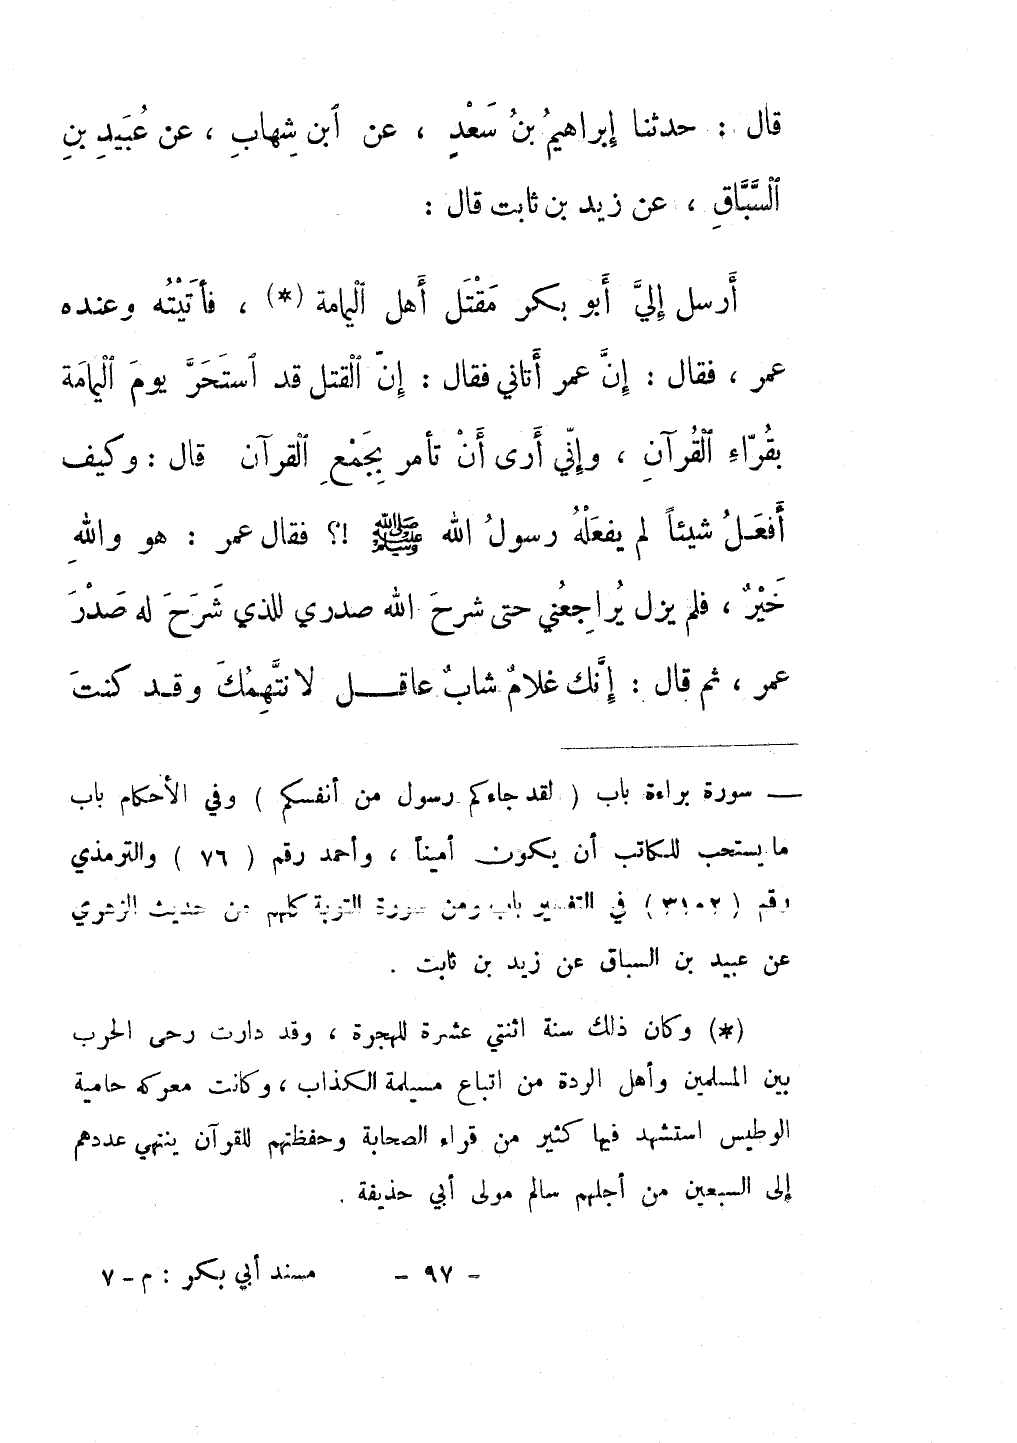 قال : حدثنا إبراهيمُ بنُ سَعْدٍ ، عن ٱبن شِهابٍ ، عن عُبَيدِ بنِ
ٱلسَّبَّاقِ ، عن زيد بن ثابت قال :
أَرسل إِليَّ أَبو بكر مَقْتَل أَهل ٱليمامة (*) ، فأَتَيْتُه وعنده
عمر ، فقال : إِنَّ عمر أَتاني فقال : إِنّ ٱلقتل قد ٱستَحَرَّ يومَ ٱليمامَة
بقُرّاءِ ٱلقُرآنِ ، وإِنّي أَرى أَنْ تأمر بِجَمْعِ ٱلقرآن قال : وكيف
أَفعَلُ شيئاً لم يفعَلْهُ رسولُ الله ﷺ !؟ فقال عمر : هو واللهِ
خَيْرٌ ، فلم يزل يُراجِعُني حتى شرحَ الله صدري للذي شَرَحَ له صَدْرَ
عمر ، ثم قال : إِنَّك غلامٌ شابٌ عاقل لا نتَّهِمُكَ وقد كنتَ
— سورة براءة باب ( لقد جاءكم رسول من أنفسكم ) وفي الأحكام باب
ما يستحب للكاتب أن يكون أميناً ، وأحمد رقم ( ٧٦ ) والترمذي
رقم ( ٣١٠٢ ) في التفسير باب ومن سورة التوبة كلهم من حديث الزهري
عن عبيد بن السباق عن زيد بن ثابت .
(*) وكان ذلك سنة اثنتي عشرة للهجرة ، وقد دارت رحى الحرب
بين المسلمين وأهل الردة من اتباع مسيلمة الكذاب ، وكانت معركه حامية
الوطيس استشهد فيها كثير من قراء الصحابة وحفظتهم للقرآن ينتهي عددهم
إلى السبعين من أجلهم سالم مولى أبي حذيفة .
- ٩٧ - مسند أبي بكر : م - ٧